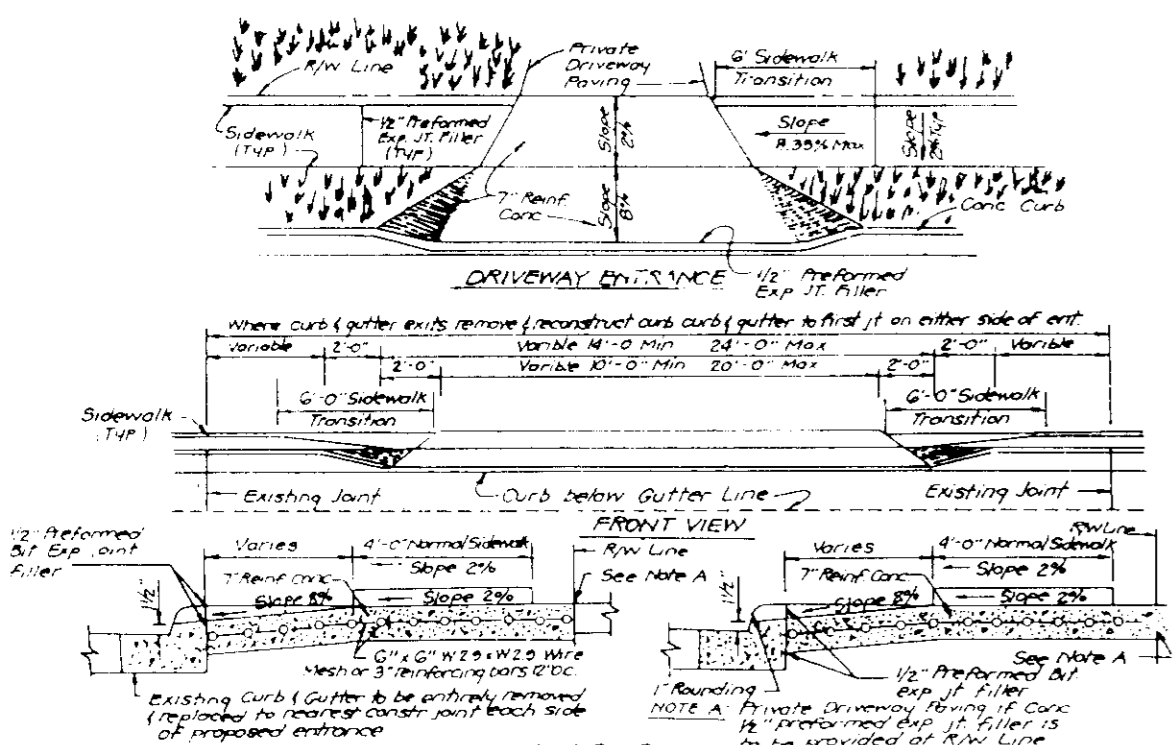 R/W Line
Private
Driveway
Paving
6' Sidewalk
Transition
Sidewalk
(TYP)
1/2" Preformed
Exp. JT. Filler
(TYP)
Slope
2%
Slope
8.33% Max
Slope
2% TYP
7" Reinf.
Conc
Slope
8%
Conc Curb
DRIVEWAY ENTRANCE
1/2" Preformed
Exp JT. Filler
Where curb & gutter exits remove & reconstruct curb curb & gutter to first jt on either side of ent.
Variable
2'-0"
Varible 14'-0 Min 24'-0" Max
2'-0"
Variable
2'-0"
Varible 10'-0" Min 20'-0" Max
2'-0"
6'-0" Sidewalk
Transition
6'-0" Sidewalk
Transition
Sidewalk
(TYP)
Existing Joint
Curb below Gutter Line
Existing Joint
FRONT VIEW
1/2" Preformed
Bit Exp joint
filler
Varies
4'-0" Normal Sidewalk
Slope 2%
R/W Line
7" Reinf Conc
See Note A
1 1/2"
Slope 8%
Slope 2%
6" x 6" W2.9 x W2.9 Wire
Mesh or 3" reinforcing bars 12" O.C.
Existing Curb & Gutter to be entirely removed
& replaced to nearest constr joint each side
of proposed entrance
R/W Line
Varies
4'-0" Normal Sidewalk
Slope 2%
7" Reinf Conc
1 1/2"
Slope 8%
Slope 2%
See Note A
1" Rounding
1/2" Preformed Bit.
exp jt filler
NOTE A: Private Driveway Paving if Conc
1/2" preformed exp jt. filler is
to be provided at R/W Line